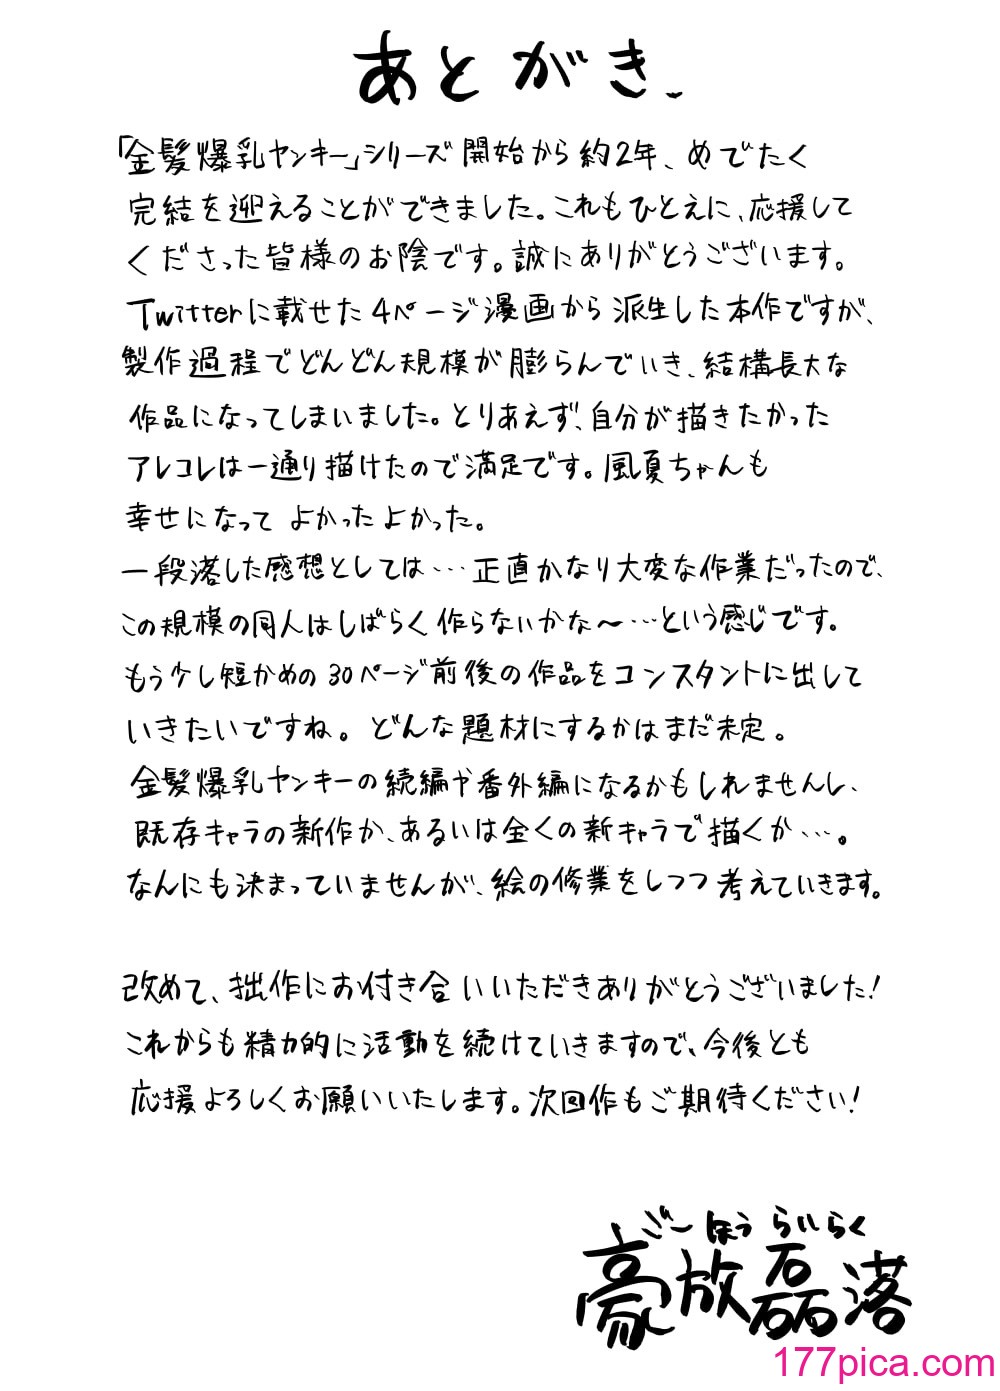 あとがき
「金髪爆乳ヤンキー」シリーズ開始から約2年、めでたく
完結を迎えることができました。これもひとえに、応援して
くださった皆様のお陰です。誠にありがとうございます。
Twitterに載せた4ページ漫画から派生した本作ですが、
製作過程でどんどん規模が膨らんでいき、結構長大な
作品になってしまいました。とりあえず、自分が描きたかった
アレコレは一通り描けたので満足です。風夏ちゃんも
幸せになって よかったよかった。
一段落した感想としては…正直かなり大変な作業だったので、
この規模の同人はしばらく作らないかな〜…という感じです。
もう少し短かめの30ページ前後の作品をコンスタントに出して
いきたいですね。どんな題材にするかはまだ未定。
金髪爆乳ヤンキーの続編や番外編になるかもしれませんし、
既存キャラの新作か、あるいは全くの新キャラで描くか…。
なんにも決まっていませんが、絵の修業をしつつ考えていきます。
改めて、拙作にお付き合いいただきありがとうございました!
これからも精力的に活動を続けていきますので、今後とも
応援よろしくお願いいたします。次回作もご期待ください!
ごーほう らいらく
豪放磊落
177pica.com